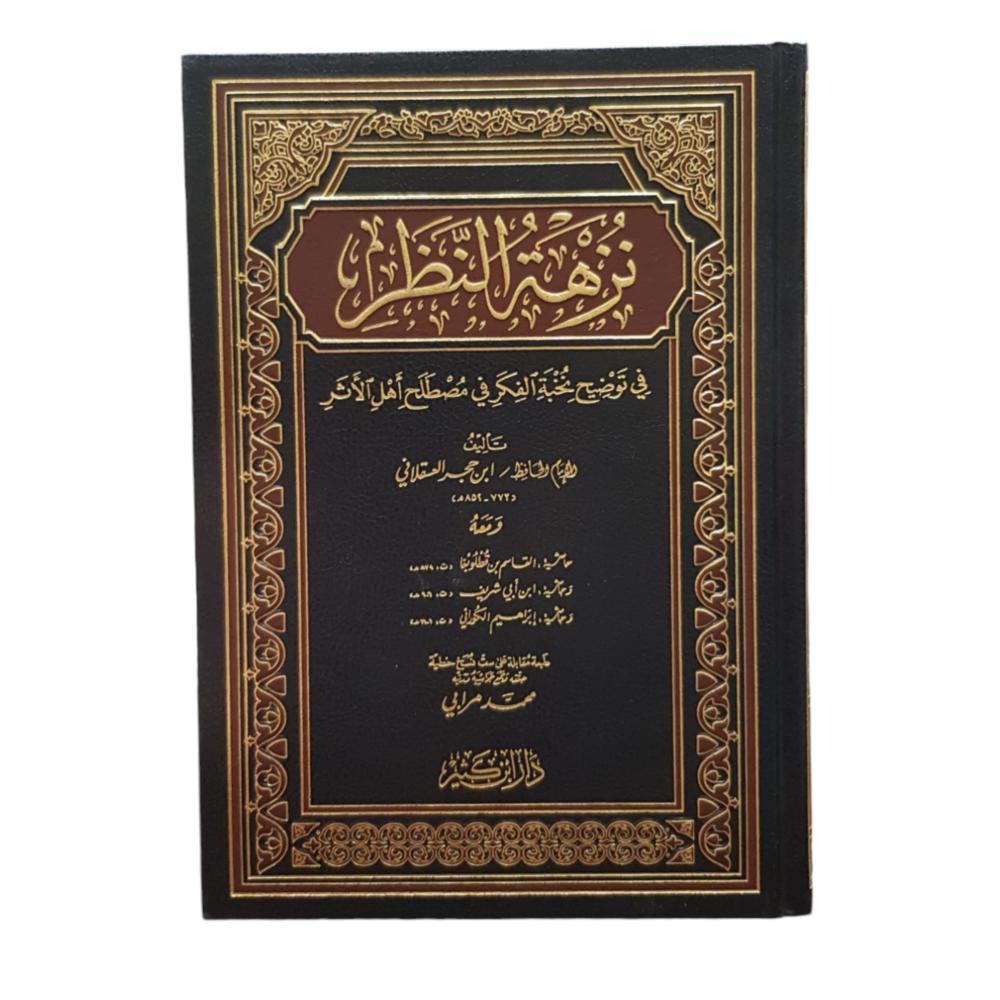 نُزْهَةُ النَّظَرِ
في تَوْضِيحِ نُخْبَةِ الفِكَرِ في مُصْطَلَحِ أَهْلِ الأَثَرِ
تَأليفُ
الإمام الحافظ / ابن حجر العسقلاني
(٧٧٢ - ٨٥٢ هـ)
وَمَعَهُ
حاشية: القاسم بن قُطْلُوبُغا (ت: ٨٧٩ هـ)
وحاشية: ابن أبي شريف (ت:
وحاشية: إبراهيم الكوراني (ت:
طبعة مقابلة على ست نسخ خطية
حققه
محمد مرابي
دار ابن كثير